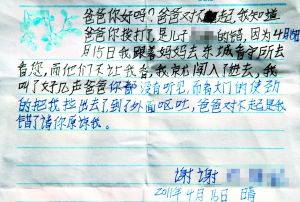 爸爸你好吗？爸爸对不起，我知道
爸爸你挨打了是儿子 的错，因为4月
15日我跟着妈妈去东城看守所去
看您，而他们不让我看，我就闯入了进去，我
叫了好几声爸爸你都没有听见，而看大门的使劲
的把我拉出去了到了外面呕吐，爸爸对不起是我
错了请你原谅我。
谢谢
2011年4月16日 晴